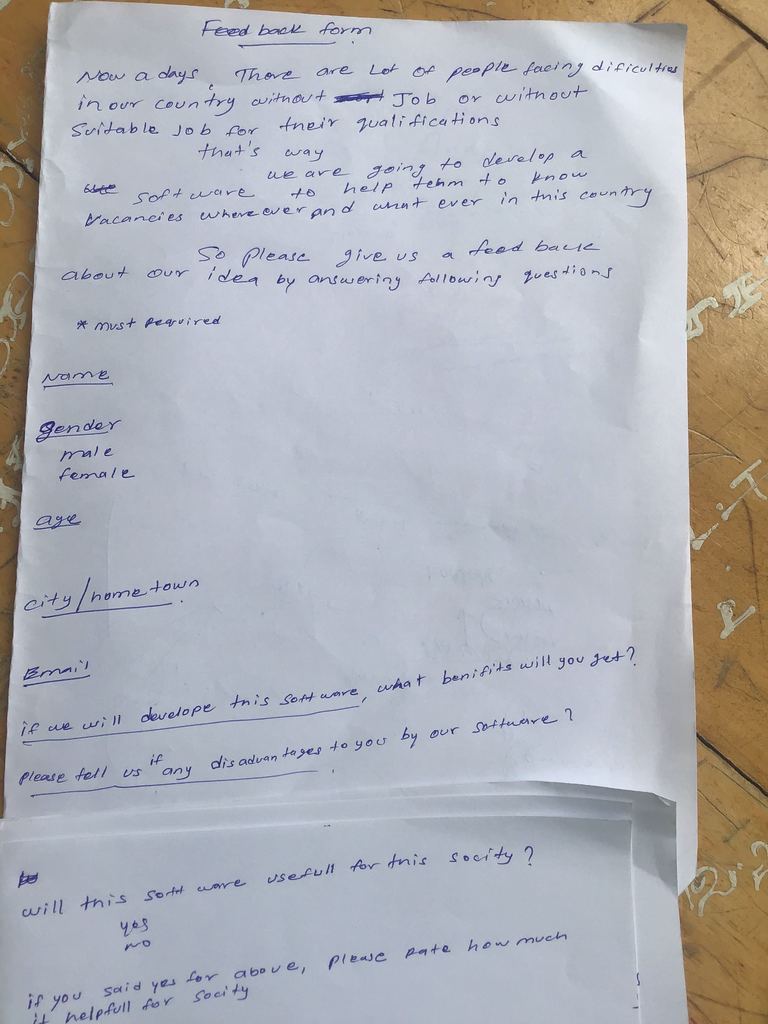 Feed back form
Now a days, There are Lot of people facing dificulties
in our country without Job or without
Suitable Job for their qualifications
that's way
we are going to develop a
software to help tehm to know
Vacancies where ever and what ever in this country
So please give us a feed back
about our idea by answering following questions
* must required
Name
gender
male
female
age
city/home town
Email
if we will develope this software, what benifits will you get?
please tell us if any disadvantages to you by our software?
will this software usefull for this socity?
yes
no
if you said yes for above, please rate how much
it helpfull for socity